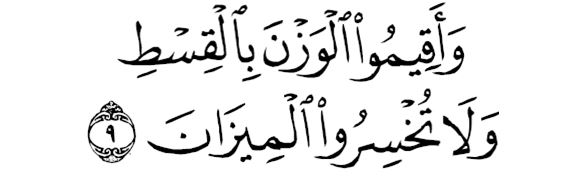 وَأَقِيمُوا۟ ٱلْوَزْنَ بِٱلْقِسْطِ
وَلَا تُخْسِرُوا۟ ٱلْمِيزَانَ ٩